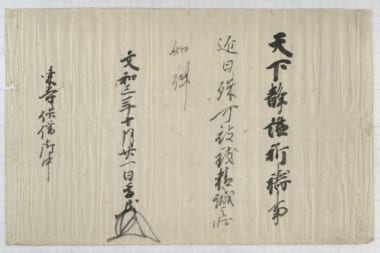 天下静謐祈祷事
近日殊可被致精誠之
如件
文和三年十月廿一日
東寺供僧御中